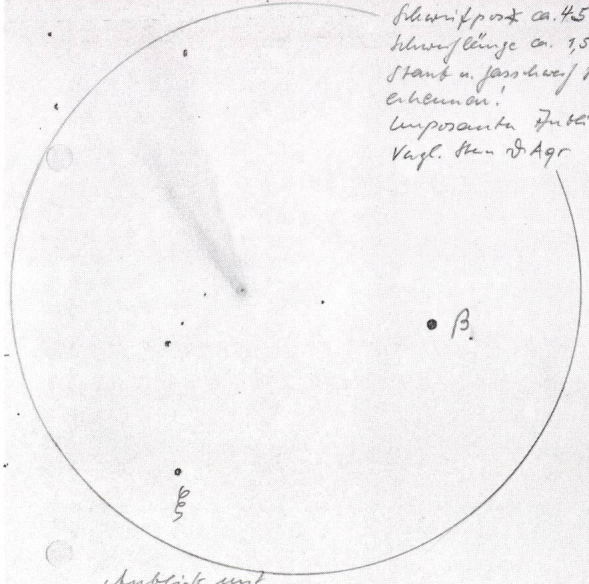 Schweifpos ca. 45
Schweiflänge ca. 1,5
Staub u. Gasschweif
erkennen!
Imposanter Anbli
Vergl. Stern ϑ Aqr
β
ξ
Anblick mit